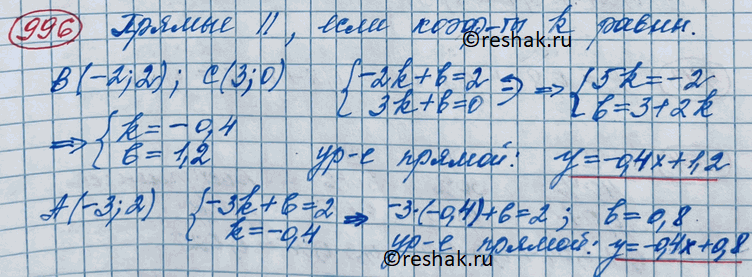 996 Прямые ||, если коэф-ты k равны.
©reshak.ru
B(-2;2); C(3;0) {-2k+b=2 3k+b=0 ⇒ {5k=-2 b=3+2k
⇒ {k=-0,4 b=1,2 ур-е прямой: y=-0,4x+1,2
A(-3;2) {-3k+b=2 k=-0,4 ⇒ -3·(-0,4)+b=2; b=0,8.
ур-е прямой: y=-0,4x+0,8
©reshak.ru